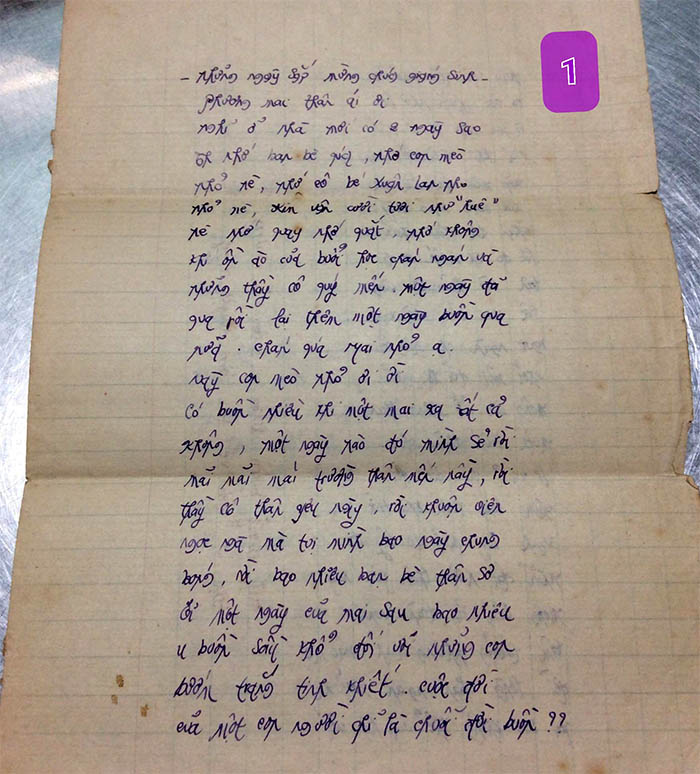 1
- những ngày sắp mừng chúa giáng sinh -
Phương mai thân ái ơi
nghỉ ở nhà mới có 2 ngày sao
nhớ bạn bè quá, nhớ con mèo
nhỏ nè, nhớ cô bé xuân lan nho
nhỏ nè, xin vẫn cười tươi như "huê"
nè nhớ quay nhớ quắt, nhớ không
khí ồn ào của buổi học chán ngán và
những thầy cô quý mến. một ngày đã
qua rồi lại thêm một ngày buồn qua
nữa. chán quá mai nhỏ ạ.
này con mèo nhỏ ơi ời
có buồn nhiều khi một mai xa tất cả
không, một ngày nào đó mình sẽ rời
mãi mãi mái trường thân mến này, rời
thầy cô thân yêu này, rời khuôn viên
ngọc ngà mà tụi mình bao ngày chung
bóng, rời bao nhiêu bạn bè thân sơ
ôi một ngày của mai sau bao nhiêu
u buồn sầu khổ đối với những con
bướm trắng tinh khiết. cuộc đời
của một con người chỉ là chuỗi đời buồn ??